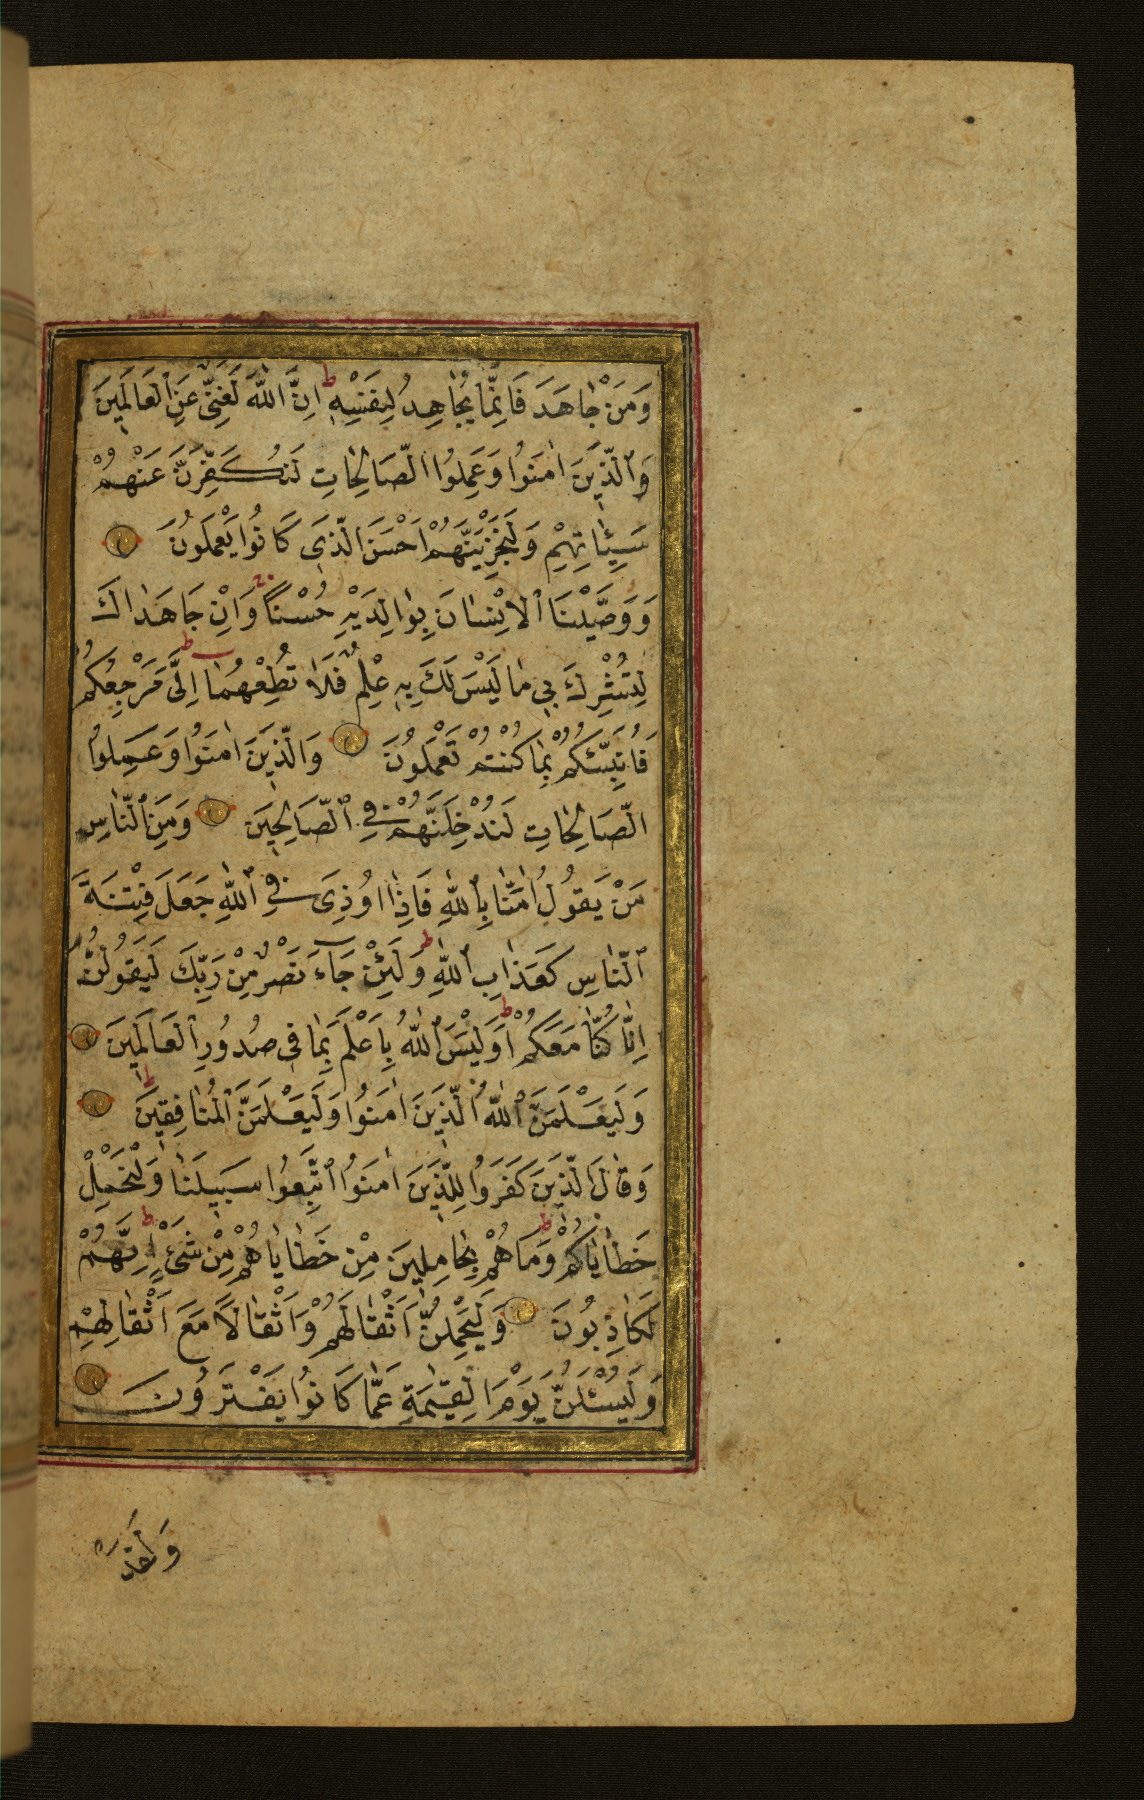 وَمَنْ جَاهَدَ فَاِنَّمَا يُجَاهِدُ لِنَفْسِهٖ ط اِنَّ اللّٰهَ لَغَنِىٌّ عَنِ الْعَالَمِينَ
وَالَّذِينَ اٰمَنُوا وَعَمِلُوا الصَّالِحَاتِ لَنُكَفِّرَنَّ عَنْهُمْ
سَيِّئَاتِهِمْ وَلَنَجْزِيَنَّهُمْ اَحْسَنَ الَّذِى كَانُوا يَعْمَلُونَ
وَوَصَّيْنَا الْاِنْسَانَ بِوَالِدَيْهِ حُسْنًا وَاِنْ جَاهَدَاكَ
لِتُشْرِكَ بِى مَا لَيْسَ لَكَ بِهٖ عِلْمٌ فَلَا تُطِعْهُمَا ط اِلَىَّ مَرْجِعُكُمْ
فَاُنَبِّئُكُمْ بِمَا كُنْتُمْ تَعْمَلُونَ وَالَّذِينَ اٰمَنُوا وَعَمِلُوا
الصَّالِحَاتِ لَنُدْخِلَنَّهُمْ فِى الصَّالِحِينَ وَمِنَ النَّاسِ
مَنْ يَقُولُ اٰمَنَّا بِاللّٰهِ فَاِذَا اُوذِىَ فِى اللّٰهِ جَعَلَ فِتْنَةَ
النَّاسِ كَعَذَابِ اللّٰهِ ط وَلَئِنْ جَآءَ نَصْرٌ مِنْ رَبِّكَ لَيَقُولُنَّ
اِنَّا كُنَّا مَعَكُمْ ط اَوَلَيْسَ اللّٰهُ بِاَعْلَمَ بِمَا فِى صُدُورِ الْعَالَمِينَ
وَلَيَعْلَمَنَّ اللّٰهُ الَّذِينَ اٰمَنُوا وَلَيَعْلَمَنَّ الْمُنَافِقِينَ
وَقَالَ الَّذِينَ كَفَرُوا لِلَّذِينَ اٰمَنُوا اتَّبِعُوا سَبِيلَنَا وَلْنَحْمِلْ
خَطَايَاكُمْ ط وَمَا هُمْ بِحَامِلِينَ مِنْ خَطَايَاهُمْ مِنْ شَىْءٍ ط اِنَّهُمْ
لَكَاذِبُونَ وَلَيَحْمِلُنَّ اَثْقَالَهُمْ وَاَثْقَالًا مَعَ اَثْقَالِهِمْ
وَلَيُسْئَلُنَّ يَوْمَ الْقِيٰمَةِ عَمَّا كَانُوا يَفْتَرُونَ
وَلَقَدْ